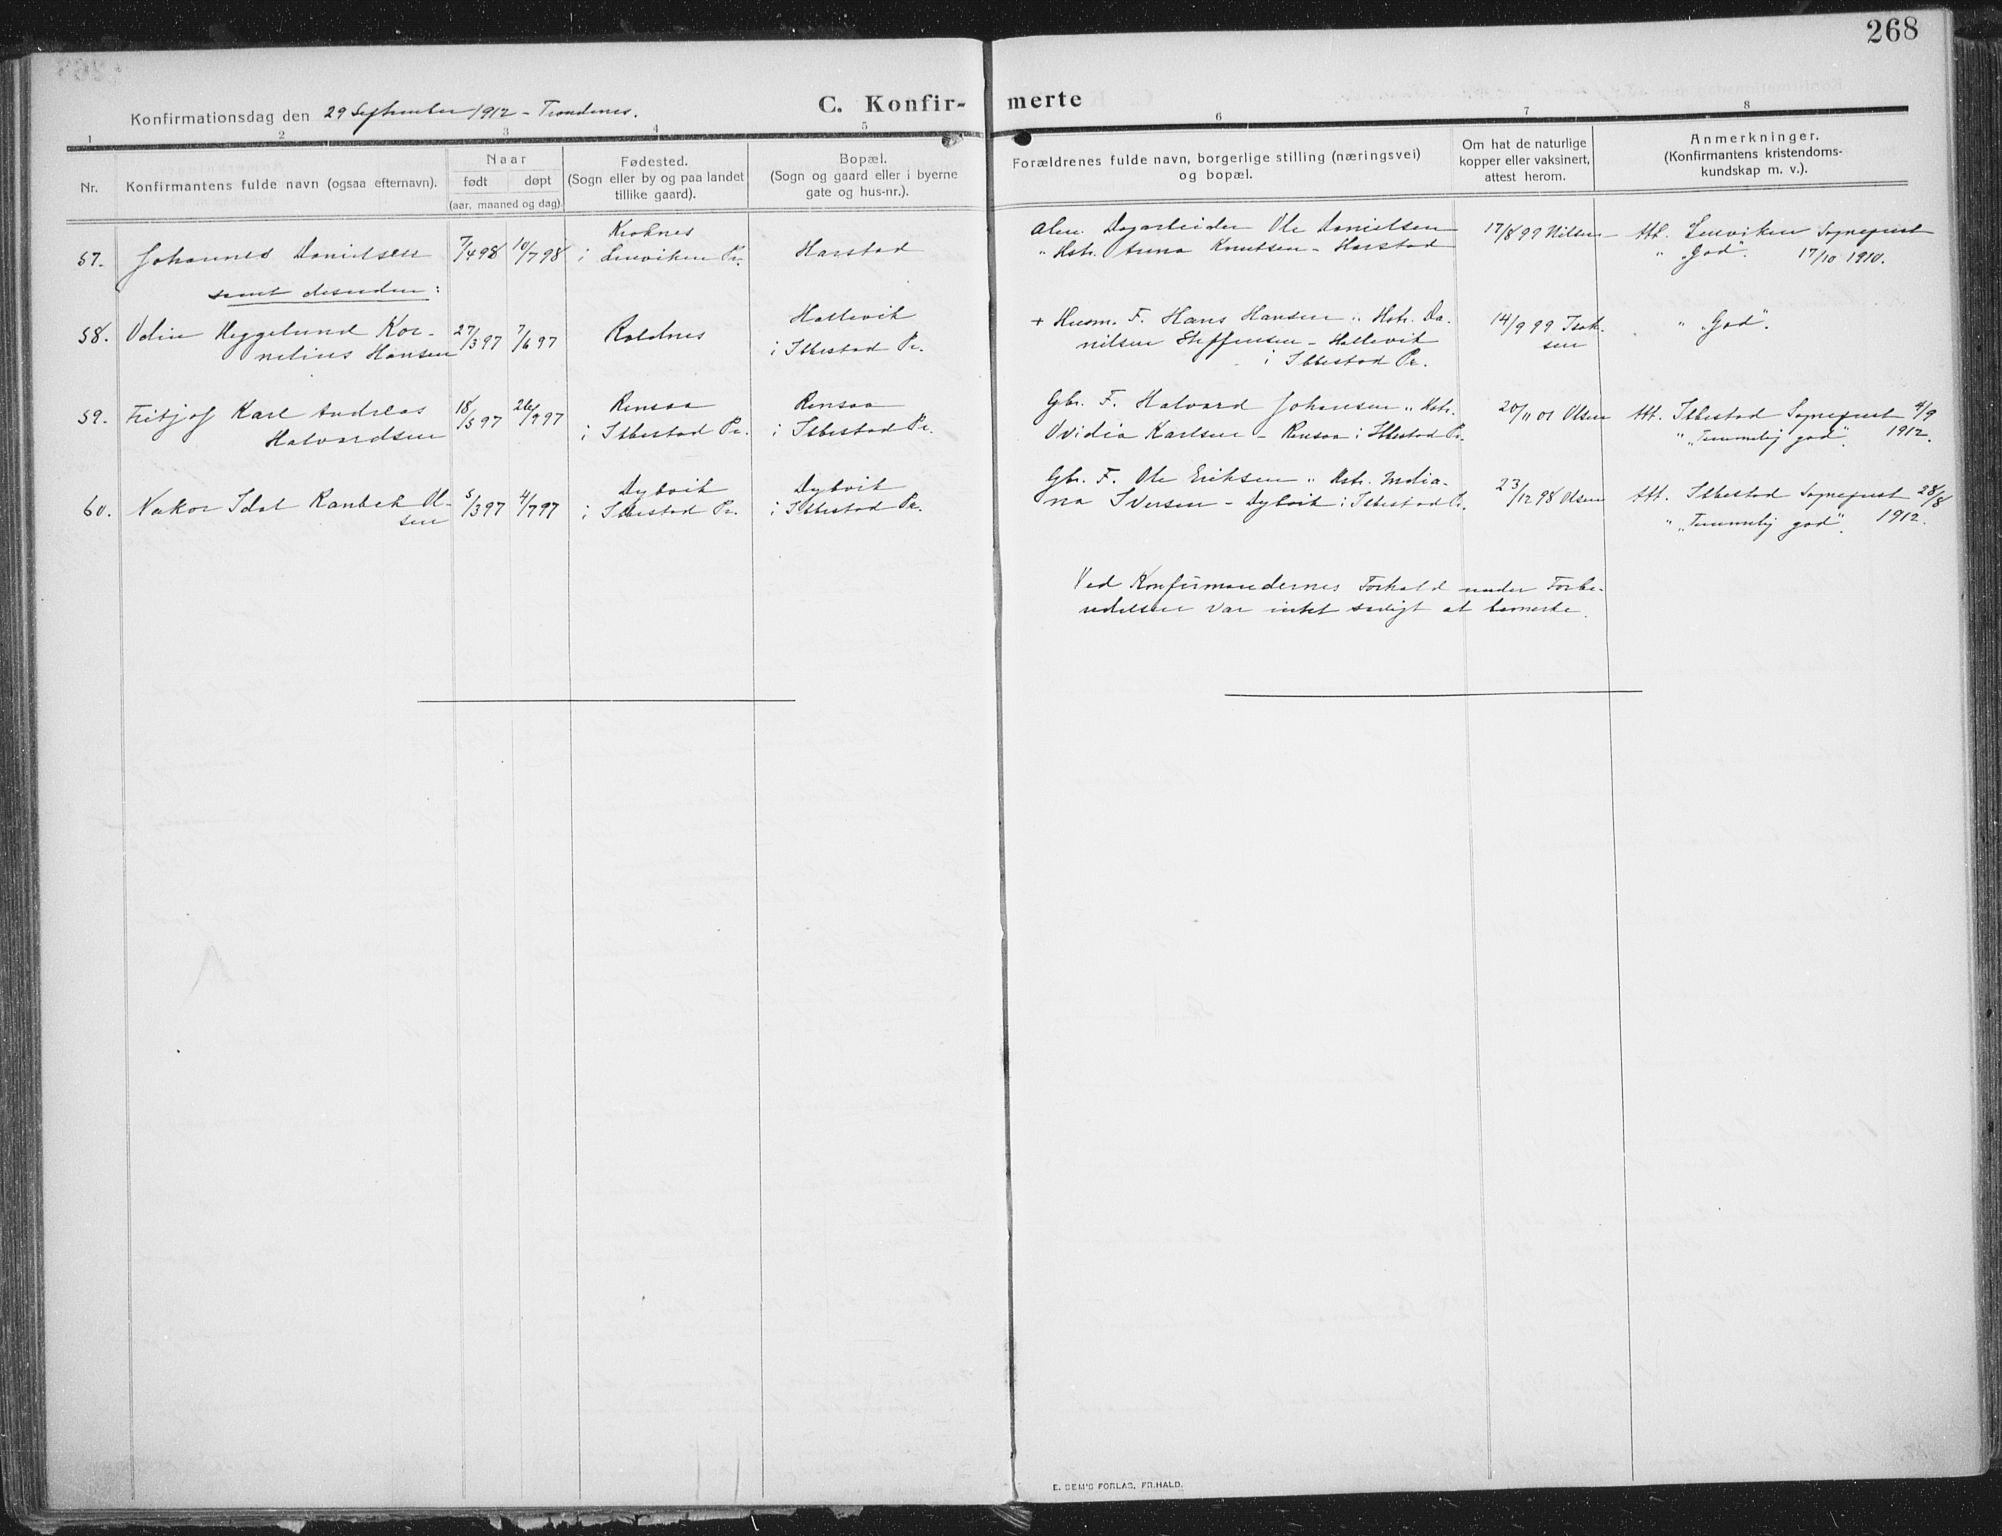 268
Konfirmationsdag den 29 September 1912 - Trondenes.
C. Konfir- merte
1 2 3 4 5 6 7 8
Nr.
Konfirmantens fulde navn (ogsaa efternavn).
Naar
født døpt
(aar, maaned og dag)
Fødested.
(Sogn eller by og paa landet
tillike gaard).
Bopæl.
(Sogn og gaard eller i byerne
gate og hus-nr.).
Forældrenes fulde navn, borgerlige stilling (næringsvei)
og bopæl.
Om hat de naturlige
kopper eller vaksinert,
attest herom.
Anmerkninger.
(Konfirmantens kristendoms-
kundskap m. v.).
57. Johannes Danielsen
7/4 98 10/7 98
Kroknes
i Lenviken Pr.
Harstad
Dagarbeider Ole Danielsen
" Hstr. Anna Knutsen - Harstad
17/8 99 Nilsen
Att. Lenviken Sogneprest
" "God". 17/10 1910.
samt desuden:
58. Odin Heggelund Kor-
nelius Hansen
27/3 97 7/6 97
Roldnes
Hallevik
i Ibbestad Pr.
+ Husm. F. Hans Hansen " Hstr. Da-
nilsen Steffensen - Hallevik
i Ibbestad Pr.
14/9 99 Isak-
sen
" "God".
59. Fritjof Karl Andreas
Halvardsen
18/5 97 26/9 97
Rensaa
i Ibbestad Pr.
Rensaa
i Ibbestad Pr.
Gbr. F. Halvard Johansen " Hstr.
Ovidia Karlsen - Rensaa i Ibbestad Pr
20/11 01 Olsen
Att. Ibbestad Sogneprest 4/9
" "Temmelig god". 1912.
60. Hakor Idot Ranbek Ol-
sen
5/3 97 4/7 97
Dybvik
i Ibbestad Pr.
Dybvik
i Ibbestad Pr.
Gbr. F. Ole Eriksen " Hstr. India-
na Iversen - Dybvik i Ibbestad Pr.
23/12 98 Olsen
Att. Ibbestad Sogneprest 28/8
" "Temmelig god". 1912.
Ved Konfirmandernes Forhold under Forbe-
redelsen var intet særligt at bemerke.
E. SEM'S FORLAG, FR.HALD.